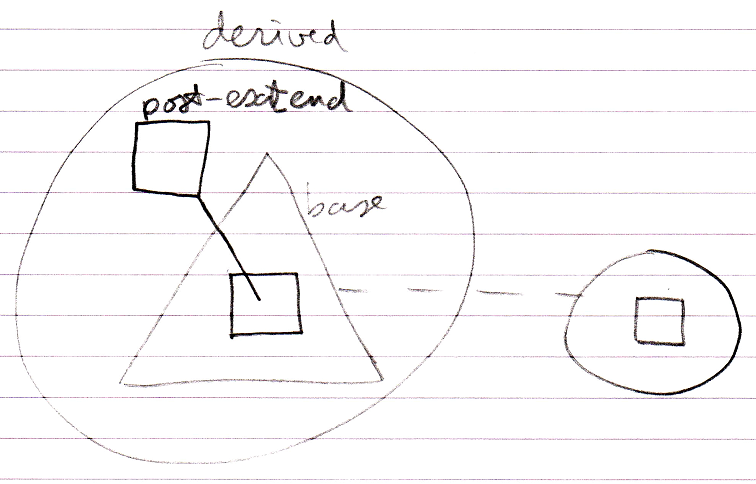 derived
post-extend
base